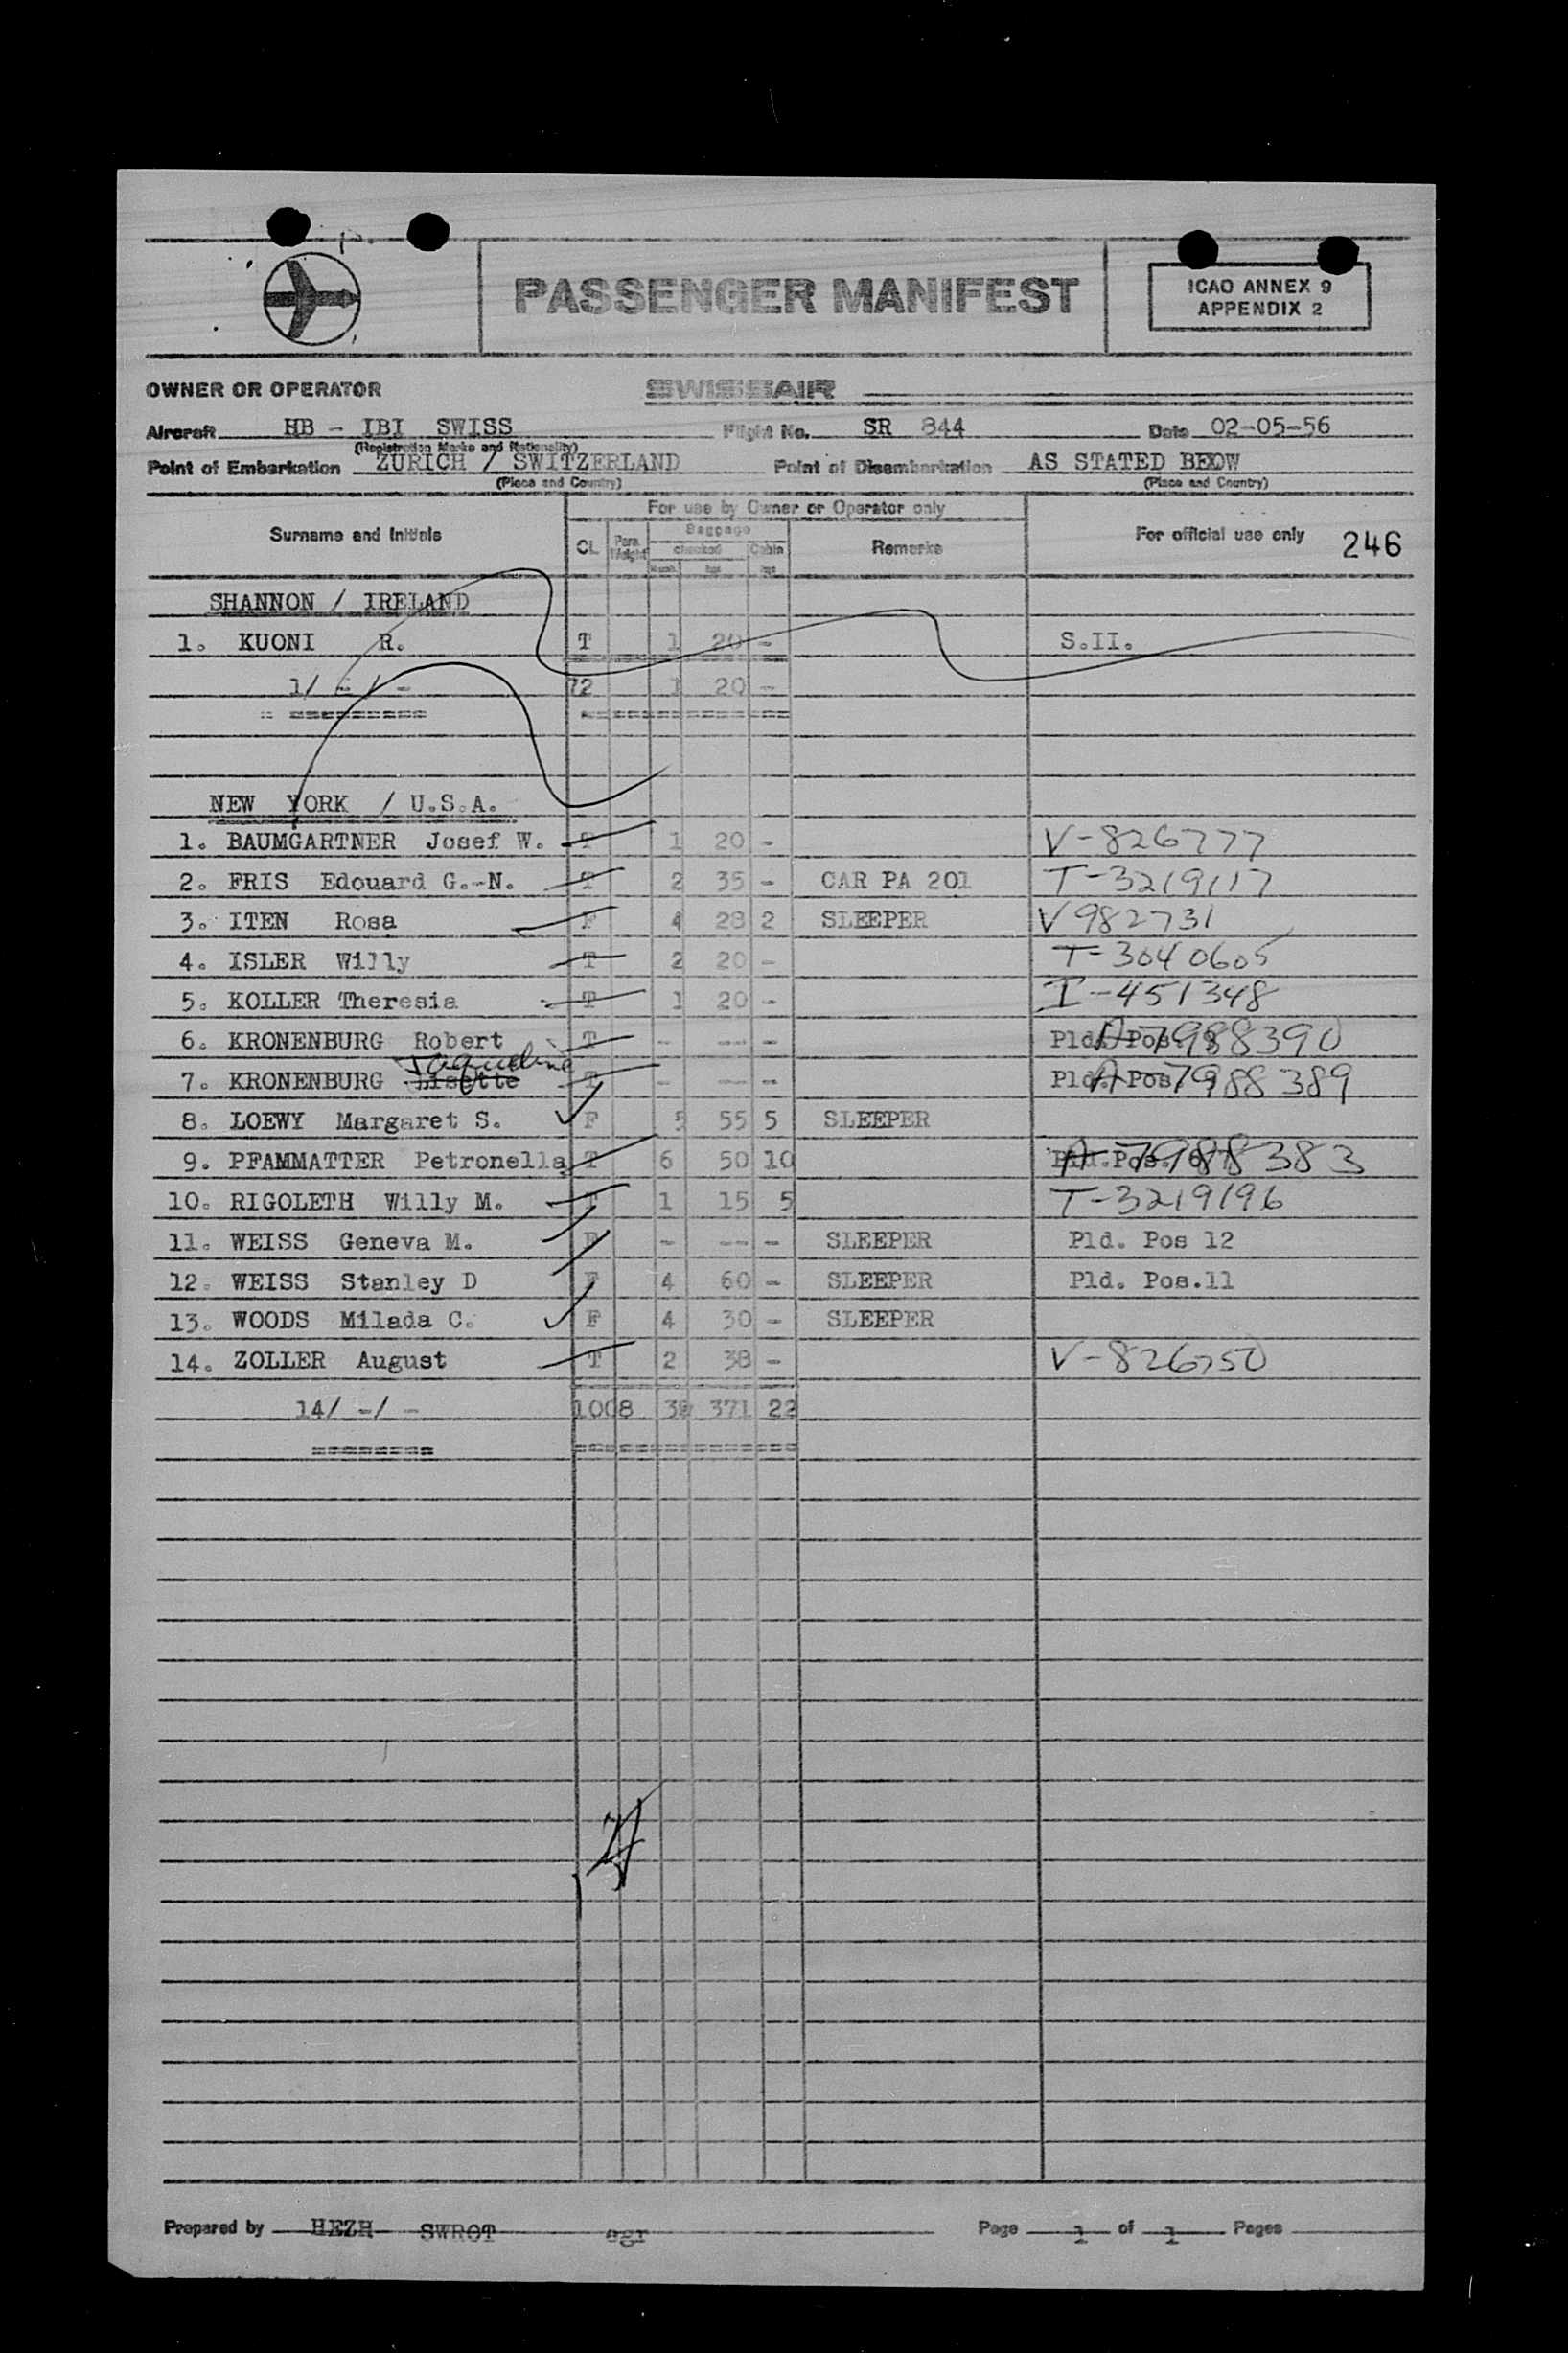 PASSENGER MANIFEST
ICAO ANNEX 9
APPENDIX 2
OWNER OR OPERATOR SWISSAIR
Aircraft HB - IBI SWISS Flight No. SR 844 Date 02-05-56
(Registration Marks and Nationality)
Point of Embarkation ZURICH / SWITZERLAND Point of Disembarkation AS STATED BELOW
(Place and Country) (Place and Country)
For use by Owner or Operator only
Surname and Initials CL Baggage checked Cabin Remarks For official use only 246
SHANNON / IRELAND
1. KUONI R. T 1 20 - S.II.
1/ - / - 72 1 20 -
NEW YORK / U.S.A.
1. BAUMGARTNER Josef W. T 1 20 - V-826777
2. FRIS Edouard G.-N. T 2 35 - CAR PA 201 T-3219117
3. ITEN Rosa F 4 28 2 SLEEPER V 982731
4. ISLER Willy T 2 20 - T-3040605
5. KOLLER Theresia T 1 20 - I-451348
6. KRONENBURG Robert T - --- - Pld. Pos. A-7988390
Jaqueline
7. KRONENBURG Lisette T - --- - Pld. Pos. A-7988389
8. LOEWY Margaret S. F 5 55 5 SLEEPER
9. PFAMMATTER Petronella T 6 50 10 Pld. Pos. A-7988383
10. RIGOLETH Willy M. T 1 15 5 T-3219196
11. WEISS Geneva M. F - --- - SLEEPER Pld. Pos 12
12. WEISS Stanley D F 4 60 - SLEEPER Pld. Pos.11
13. WOODS Milada C. F 4 30 - SLEEPER
14. ZOLLER August T 2 38 - V-826750
14/ -/ - 1008 371 22
Prepared by HEZH SWROT agr Page 1 of 1 Pages